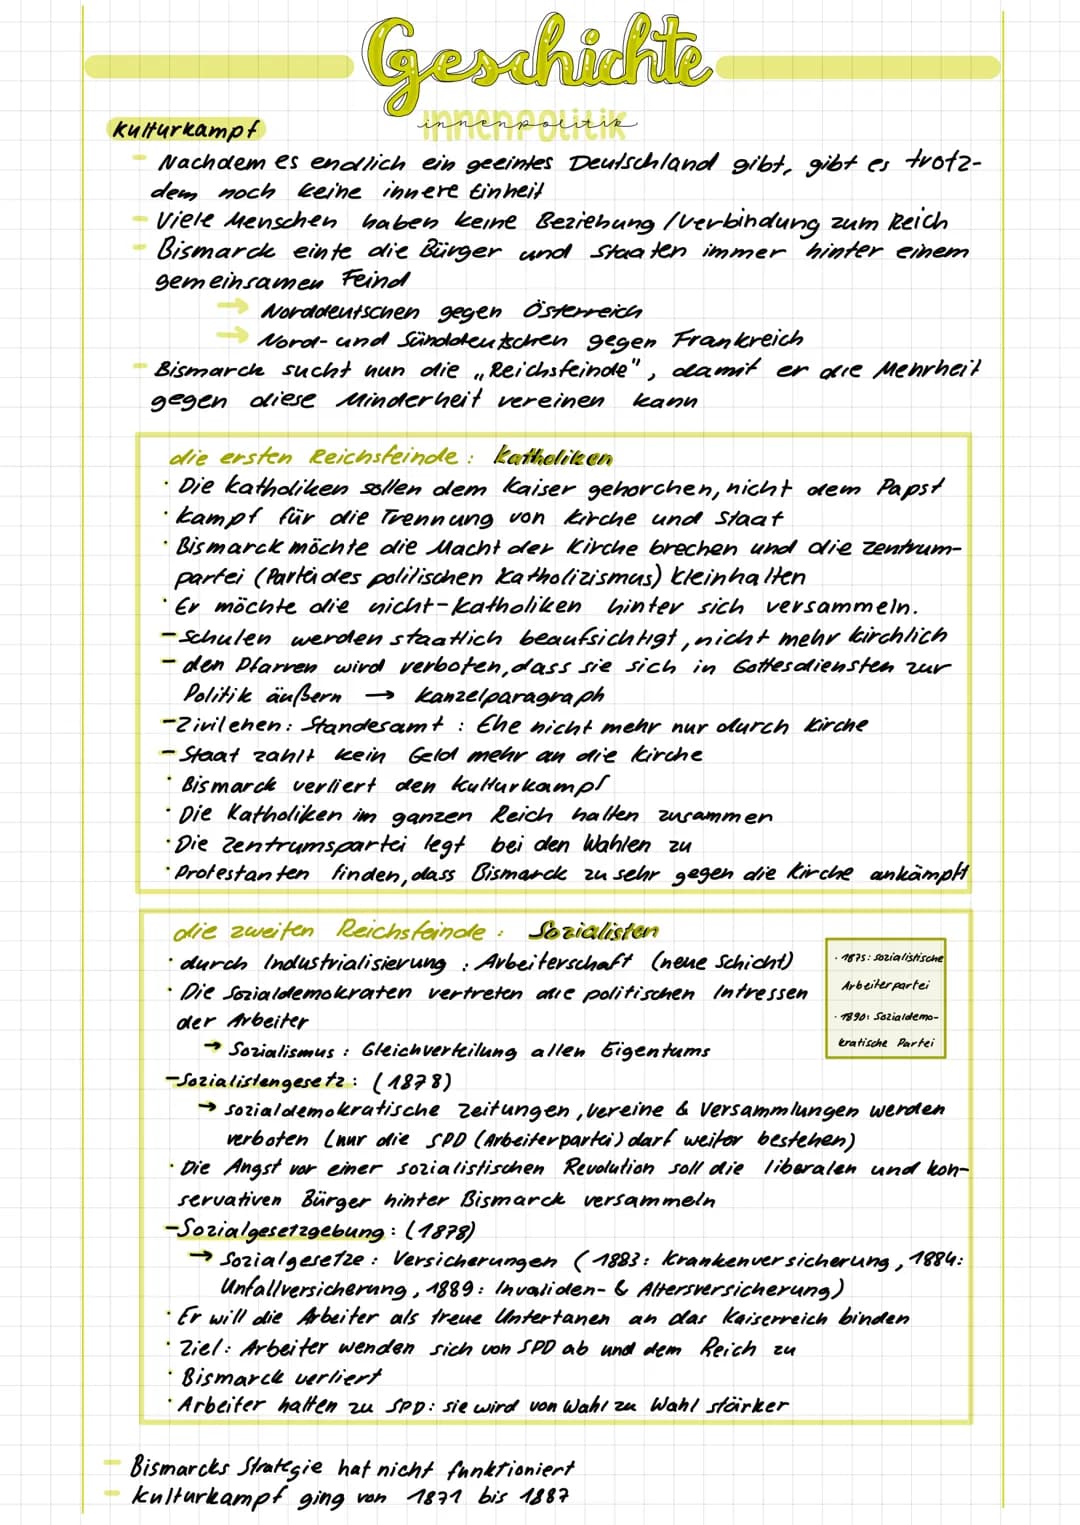 Geschichte
innenpolitik
Kulturkampf
- Nachdem es endlich ein geeintes Deutschland gibt, gibt es trotz-
dem noch keine innere Einheit
- Viele Menschen haben keine Beziehung/Verbindung zum Reich
- Bismarck einte die Bürger und Staaten immer hinter einem
gemeinsamen Feind
→ Norddeutschen gegen Österreich
→ Nord- und Sünddeutschen gegen Frankreich
- Bismarck sucht nun die „Reichsfeinde", damit er die Mehrheit
gegen diese Minderheit vereinen kann
die ersten Reichsfeinde: Katholiken
· Die Katholiken sollen dem Kaiser gehorchen, nicht dem Papst
· Kampf für die Trennung von Kirche und Staat
· Bismarck möchte die Macht der Kirche brechen und die Zentrum-
partei (Partei des politischen Katholizismus) kleinhalten
· Er möchte die nicht-Katholiken hinter sich versammeln.
- Schulen werden staatlich beaufsichtigt, nicht mehr kirchlich
- den Pfarren wird verboten, dass sie sich in Gottesdiensten zur
Politik äußern → Kanzelparagraph
- Zivilehen: Standesamt: Ehe nicht mehr nur durch Kirche
- Staat zahlt kein Geld mehr an die Kirche
· Bismarck verliert den Kulturkampf
· Die Katholiken im ganzen Reich halten zusammen
· Die Zentrumspartei legt bei den Wahlen zu
· Protestanten finden, dass Bismarck zu sehr gegen die Kirche ankämpft
die zweiten Reichsfeinde: Sozialisten
· durch Industrialisierung: Arbeiterschaft (neue Schicht)
· Die Sozialdemokraten vertreten die politischen Intressen
der Arbeiter
→ Sozialismus: Gleichverteilung allen Eigentums
· 1875: sozialistische
Arbeiterpartei
· 1890: Sozialdemo-
kratische Partei
- Sozialistengesetz: (1878)
→ sozialdemokratische Zeitungen, Vereine & Versammlungen werden
verboten (nur die SPD (Arbeiterpartei) darf weiter bestehen)
· Die Angst vor einer sozialistischen Revolution soll die liberalen und kon-
servativen Bürger hinter Bismarck versammeln
- Sozialgesetzgebung: (1878)
→ Sozialgesetze: Versicherungen (1883: Krankenversicherung, 1884:
Unfallversicherung, 1889: Invaliden- & Altersversicherung)
· Er will die Arbeiter als treue Untertanen an das Kaiserreich binden
· Ziel: Arbeiter wenden sich von SPD ab und dem Reich zu
· Bismarck verliert
· Arbeiter halten zu SPD: sie wird von Wahl zu Wahl stärker
- Bismarcks Strategie hat nicht funktioniert
- Kulturkampf ging von 1871 bis 1887